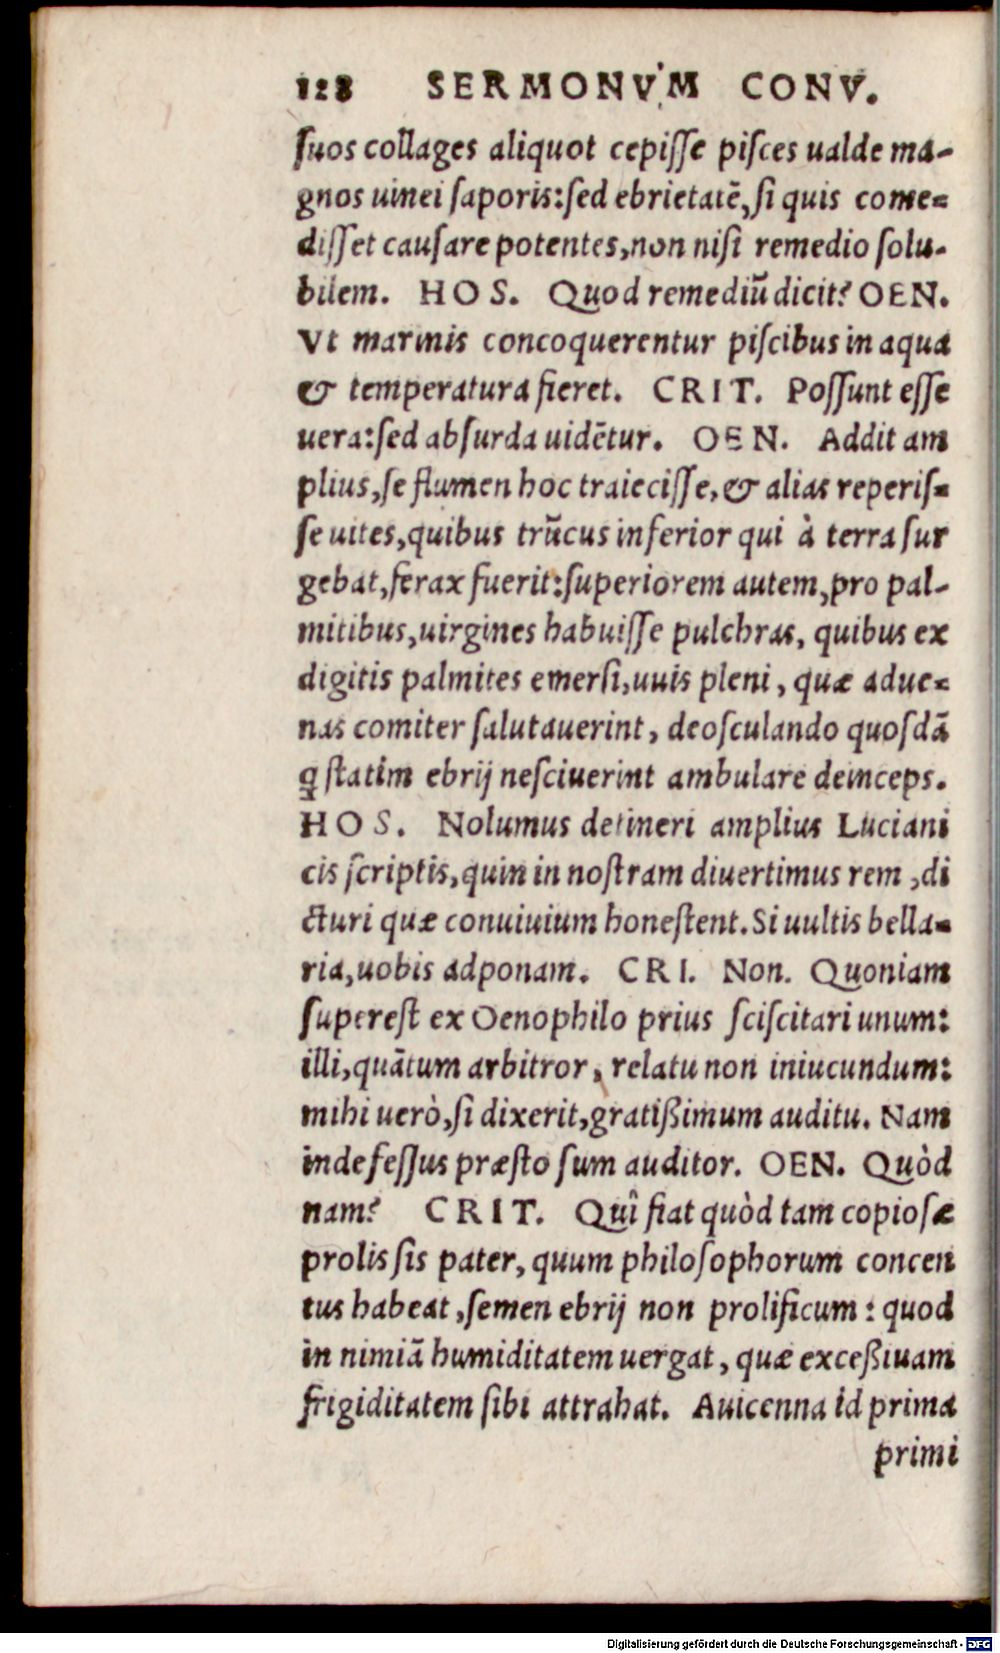 128 SERMONVM CONV.
ſuos collages aliquot cepiſſe piſces ualde ma-
gnos uinei ſaporis:ſed ebrietatē,ſi quis come=
diſſet cauſare potentes,non niſi remedio ſolu-
bilem. HOS. Quod remediū dicit? OEN.
Vt marinis concoquerentur piſcibus in aqua
& temperatura fieret. CRIT. Poſſunt eſſe
uera:ſed abſurda uidētur. OEN. Addit am
plius,ſe flumen hoc traieciſſe,& alias reperiſ=
ſe uites,quibus trūcus inferior qui à terra ſur
gebat,ferax fuerit:ſuperiorem autem,pro pal-
mitibus,uirgines habuiſſe pulchras, quibus ex
digitis palmites emerſi,uuis pleni, quæ adue=
nas comiter ſalutauerint, deoſculando quoſdā
ꝗ ſtatim ebrij neſciuerint ambulare deinceps.
HOS. Nolumus detineri amplius Luciani
cis ſcriptis,quin in noſtram diuertimus rem ,di
cturi quæ conuiuium honeſtent.Si uultis bella=
ria,uobis adponam. CRI. Non. Quoniam
ſupereſt ex Oenophilo prius ſciſcitari unum:
illi,quātum arbitror, relatu non iniucundum:
mihi uerò,ſi dixerit,gratißimum auditu. Nam
indefeſſus præſto ſum auditor. OEN. Quòd
nam? CRIT. Quî fiat quòd tam copioſæ
prolis ſis pater, quum philoſophorum concen
tus habeat ,ſemen ebrij non prolificum : quod
in nimiā humiditatem uergat, quæ exceßiuam
frigiditatem ſibi attrahat. Auicenna id prima
primi
Digitalisierung gefördert durch die Deutsche Forschungsgemeinschaft - DFG